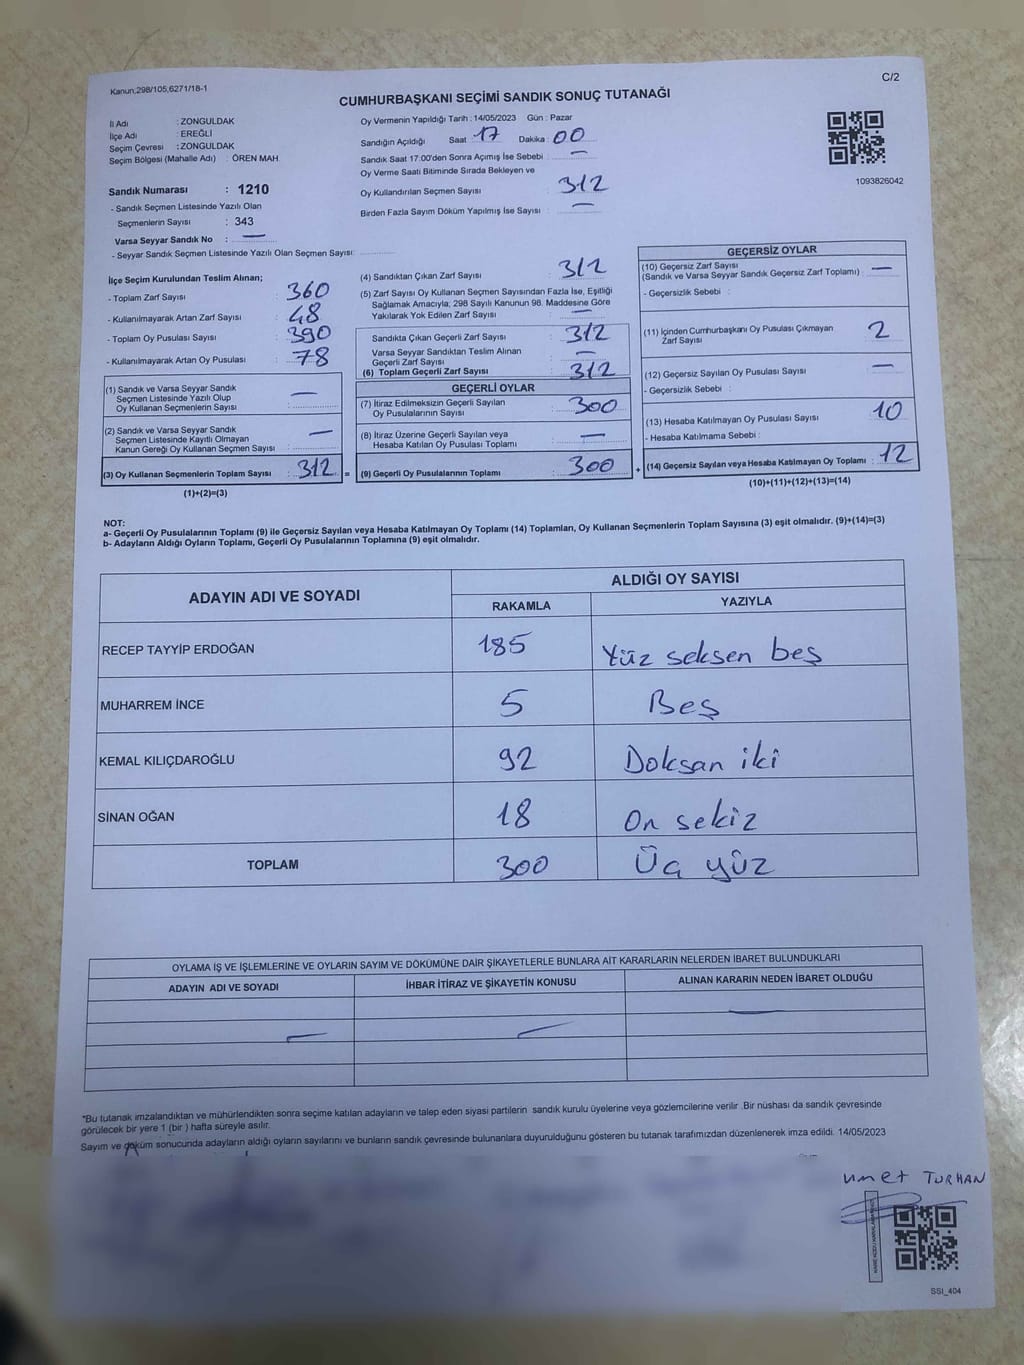 Kanun,298/105,6271/18-1
C/2
CUMHURBAŞKANI SEÇİMİ SANDIK SONUÇ TUTANAĞI
İl Adı : ZONGULDAK
İlçe Adı : EREĞLİ
Seçim Çevresi : ZONGULDAK
Seçim Bölgesi (Mahalle Adı) : ÖREN MAH.
Sandık Numarası : 1210
- Sandık Seçmen Listesinde Yazılı Olan
Seçmenlerin Sayısı : 343
Varsa Seyyar Sandık No : —
- Seyyar Sandık Seçmen Listesinde Yazılı Olan Seçmen Sayısı:
Oy Vermenin Yapıldığı Tarih : 14/05/2023 Gün : Pazar
Sandığın Açıldığı Saat 17 Dakika : 00
Sandık Saat 17:00'den Sonra Açımış İse Sebebi : —
Oy Verme Saati Bitiminde Sırada Bekleyen ve
Oy Kullandırılan Seçmen Sayısı : 312
Birden Fazla Sayım Döküm Yapılmış İse Sayısı : —
1093826042
İlçe Seçim Kurulundan Teslim Alınan;
- Toplam Zarf Sayısı : 360
- Kullanılmayarak Artan Zarf Sayısı : 48
- Toplam Oy Pusulası Sayısı : 390
- Kullanılmayarak Artan Oy Pusulası : 78
(1) Sandık ve Varsa Seyyar Sandık
Seçmen Listesinde Yazılı Olup
Oy Kullanan Seçmenlerin Sayısı : —
(2) Sandık ve Varsa Seyyar Sandık
Seçmen Listesinde Kayıtlı Olmayan
Kanun Gereği Oy Kullanan Seçmen Sayısı : —
(3) Oy Kullanan Seçmenlerin Toplam Sayısı : 312 =
(1)+(2)=(3)
(4) Sandıktan Çıkan Zarf Sayısı : 312
(5) Zarf Sayısı Oy Kullanan Seçmen Sayısından Fazla İse, Eşitliği
Sağlamak Amacıyla, 298 Sayılı Kanunun 98. Maddesine Göre
Yakılarak Yok Edilen Zarf Sayısı : —
Sandıkta Çıkan Geçerli Zarf Sayısı : 312
Varsa Seyyar Sandıktan Teslim Alınan
Geçerli Zarf Sayısı : —
(6) Toplam Geçerli Zarf Sayısı : 312
GEÇERLİ OYLAR
(7) İtiraz Edilmeksizin Geçerli Sayılan
Oy Pusulalarının Sayısı : 300
(8) İtiraz Üzerine Geçerli Sayılan veya
Hesaba Katılan Oy Pusulası Toplamı : —
(9) Geçerli Oy Pusulalarının Toplamı : 300 +
GEÇERSİZ OYLAR
(10) Geçersiz Zarf Sayısı : —
(Sandık ve Varsa Seyyar Sandık Geçersiz Zarf Toplamı)
- Geçersizlik Sebebi :
(11) İçinden Cumhurbaşkanı Oy Pusulası Çıkmayan
Zarf Sayısı : 2
(12) Geçersiz Sayılan Oy Pusulası Sayısı : —
- Geçersizlik Sebebi :
(13) Hesaba Katılmayan Oy Pusulası Sayısı : 10
- Hesaba Katılmama Sebebi :
(14) Geçersiz Sayılan veya Hesaba Katılmayan Oy Toplamı : 12
(10)+(11)+(12)+(13)=(14)
NOT:
a- Geçerli Oy Pusulalarının Toplamı (9) ile Geçersiz Sayılan veya Hesaba Katılmayan Oy Toplamı (14) Toplamları, Oy Kullanan Seçmenlerin Toplam Sayısına (3) eşit olmalıdır. (9)+(14)=(3)
b- Adayların Aldığı Oyların Toplamı, Geçerli Oy Pusulalarının Toplamına (9) eşit olmalıdır.
ADAYIN ADI VE SOYADI
ALDIĞI OY SAYISI
RAKAMLA YAZIYLA
RECEP TAYYİP ERDOĞAN 185 Yüz seksen beş
MUHARREM İNCE 5 Beş
KEMAL KILIÇDAROĞLU 92 Doksan iki
SİNAN OĞAN 18 On sekiz
TOPLAM 300 Üç yüz
OYLAMA İŞ VE İŞLEMLERİNE VE OYLARIN SAYIM VE DÖKÜMÜNE DAİR ŞİKAYETLERLE BUNLARA AİT KARARLARIN NELERDEN İBARET BULUNDUKLARI
ADAYIN ADI VE SOYADI İHBAR İTİRAZ VE ŞİKAYETİN KONUSU ALINAN KARARIN NEDEN İBARET OLDUĞU
— — —
*Bu tutanak imzalandıktan ve mühürlendikten sonra seçime katılan adayların ve talep eden siyasi partilerin sandık kurulu üyelerine veya gözlemcilerine verilir .Bir nüshası da sandık çevresinde
görülecek bir yere 1 (bir ) hafta süreyle asılır.
Sayım ve döküm sonucunda adayların aldığı oyların sayılarını ve bunların sandık çevresinde bulunanlara duyurulduğunu gösteren bu tutanak tarafımızdan düzenlenerek imza edildi. 14/05/2023
TURHAN
SSI_404